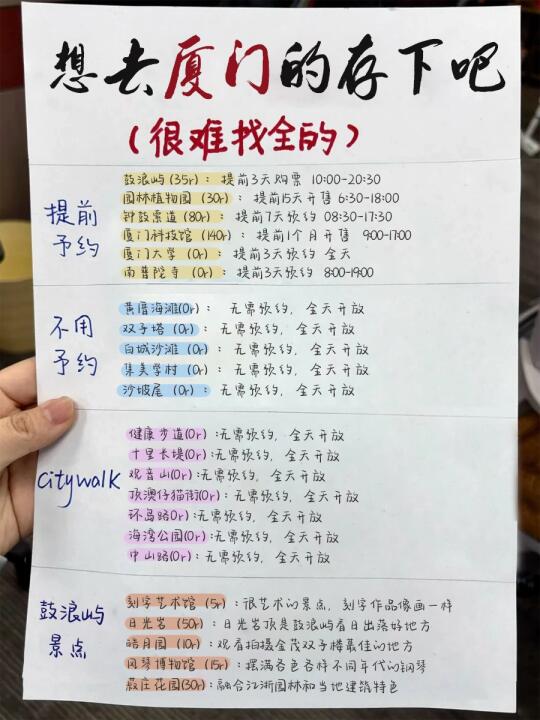 想去厦门的存下吧
(很难找全的)
提前
予约
鼓浪屿(35r): 提前3天购票 10:00-20:30
园林植物园(30r): 提前15天开售 6:30-18:00
钟鼓索道(80r): 提前7天预约 08:30-17:30
厦门科技馆(140r): 提前1个月开售 9:00-17:00
厦门大学(0r): 提前3天预约 全天
南普陀寺(0r): 提前3天预约 8:00-19:00
不用
予约
黄厝海滩(0r): 无需预约, 全天开放
双子塔(0r): 无需预约, 全天开放
白城沙滩(0r): 无需预约, 全天开放
集美学村(0r): 无需预约, 全天开放
沙坡尾(0r): 无需预约, 全天开放
citywalk
健康步道(0r):无需预约, 全天开放
十里长堤(0r):无需预约, 全天开放
观音山(0r):无需预约, 全天开放
顶澳仔猫街(0r):无需预约, 全天开放
环岛路0r):无需预约, 全天开放
海湾公园(0r):无需预约, 全天开放
中山路(0r):无需预约, 全天开放
鼓浪屿
景点
刻字艺术馆(5r):很艺术的景点, 刻字作品像画一样
日光岩(50r):日光岩顶是鼓浪屿看日出落好地方
皓月园(10r):观看拍摄金茂双子楼最佳的地方
风琴博物馆(15r):摆满各色各样不同年代的钢琴
菽庄花园(30r):融合江浙园林和当地建筑特色